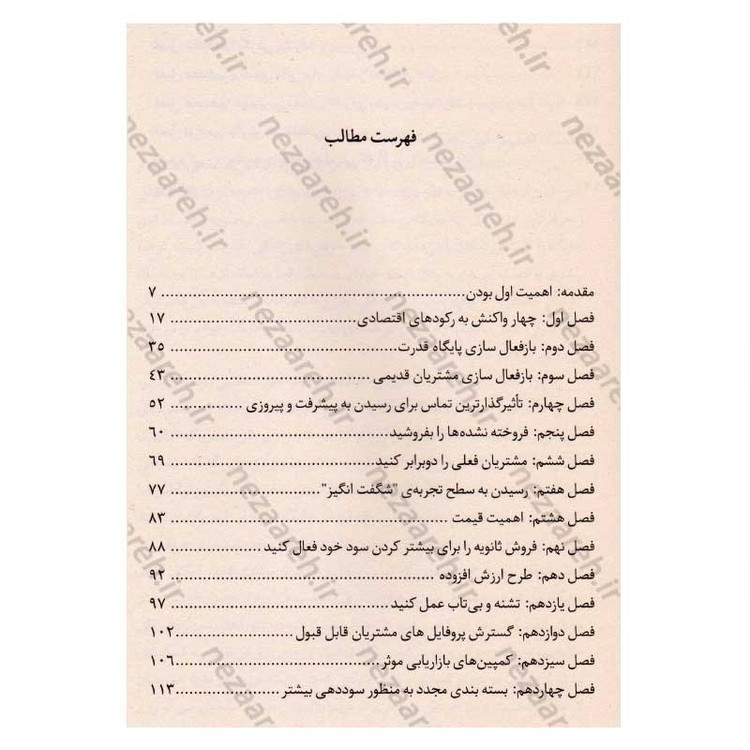 فهرست مطالب
مقدمه: اهمیت اول بودن ........ ۷
فصل اول: چهار واکنش به رکودهای اقتصادی ........ ۱۷
فصل دوم: بازفعال سازی پایگاه قدرت ........ ۳۵
فصل سوم: بازفعال سازی مشتریان قدیمی ........ ۴۳
فصل چهارم: تأثیرگذارترین تماس برای رسیدن به پیشرفت و پیروزی ........ ۵۲
فصل پنجم: فروخته نشده‌ها را بفروشید ........ ۶۰
فصل ششم: مشتریان فعلی را دوبرابر کنید ........ ۶۹
فصل هفتم: رسیدن به سطح تجربه‌ی "شگفت انگیز" ........ ۷۷
فصل هشتم: اهمیت قیمت ........ ۸۳
فصل نهم: فروش ثانویه را برای بیشتر کردن سود خود فعال کنید ........ ۸۸
فصل دهم: طرح ارزش افزوده ........ ۹۲
فصل یازدهم: تشنه و بی‌تاب عمل کنید ........ ۹۷
فصل دوازدهم: گسترش پروفایل های مشتریان قابل قبول ........ ۱۰۲
فصل سیزدهم: کمپین‌های بازاریابی موثر ........ ۱۰۶
فصل چهاردهم: بسته بندی مجدد به منظور سوددهی بیشتر ........ ۱۱۳
nezaareh.ir